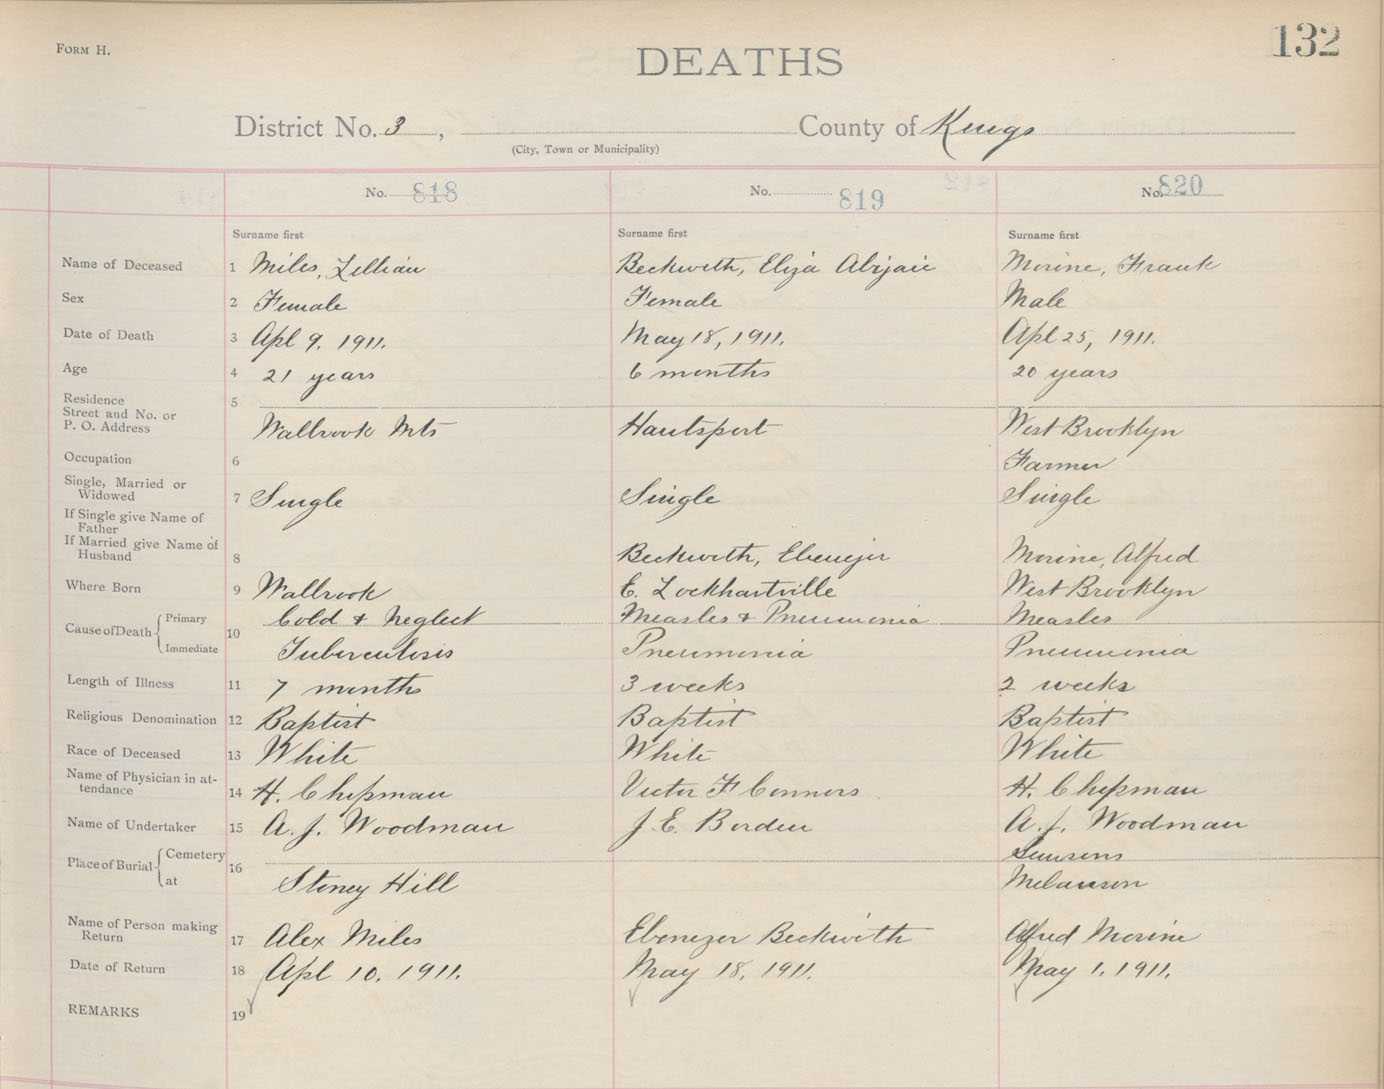 FORM H.
132
DEATHS
District No. 3, County of Kings
(City, Town or Municipality)
No. 818 No. 819 No. 820
Surname first Surname first Surname first
Name of Deceased 1 Miles, Lillian Beckwith, Eliza Abijaic Morine, Frank
Sex 2 Female Female Male
Date of Death 3 Apl 9. 1911. May 18, 1911. Apl 25, 1911.
Age 4 21 years 6 months 20 years
Residence 5
Street and No. or
P. O. Address Walbrook Mts Hantsport West Brooklyn
Occupation 6 Farmer
Single, Married or
Widowed 7 Single Single Single
If Single give Name of
Father
If Married give Name of
Husband 8 Beckwith, Ebenezer Morine, Alfred
Where Born 9 Walbrook E. Lockhartville West Brooklyn
Cause of Death Primary 10 Cold & Neglect Measles & Pneumonia Measles
Immediate Tuberculosis Pneumonia Pneumonia
Length of Illness 11 7 months 3 weeks 2 weeks
Religious Denomination 12 Baptist Baptist Baptist
Race of Deceased 13 White White White
Name of Physician in at-
tendance 14 H. Chipman Victor F Connors H. Chipman
Name of Undertaker 15 A. J. Woodman J. E. Borden A. J. Woodman
Place of Burial Cemetery 16
at Stoney Hill Melanson
Name of Person making
Return 17 Alex Miles Ebenezer Beckwith Alfred Morine
Date of Return 18 Apl 10, 1911. May 18, 1911. May 1, 1911.
REMARKS 19